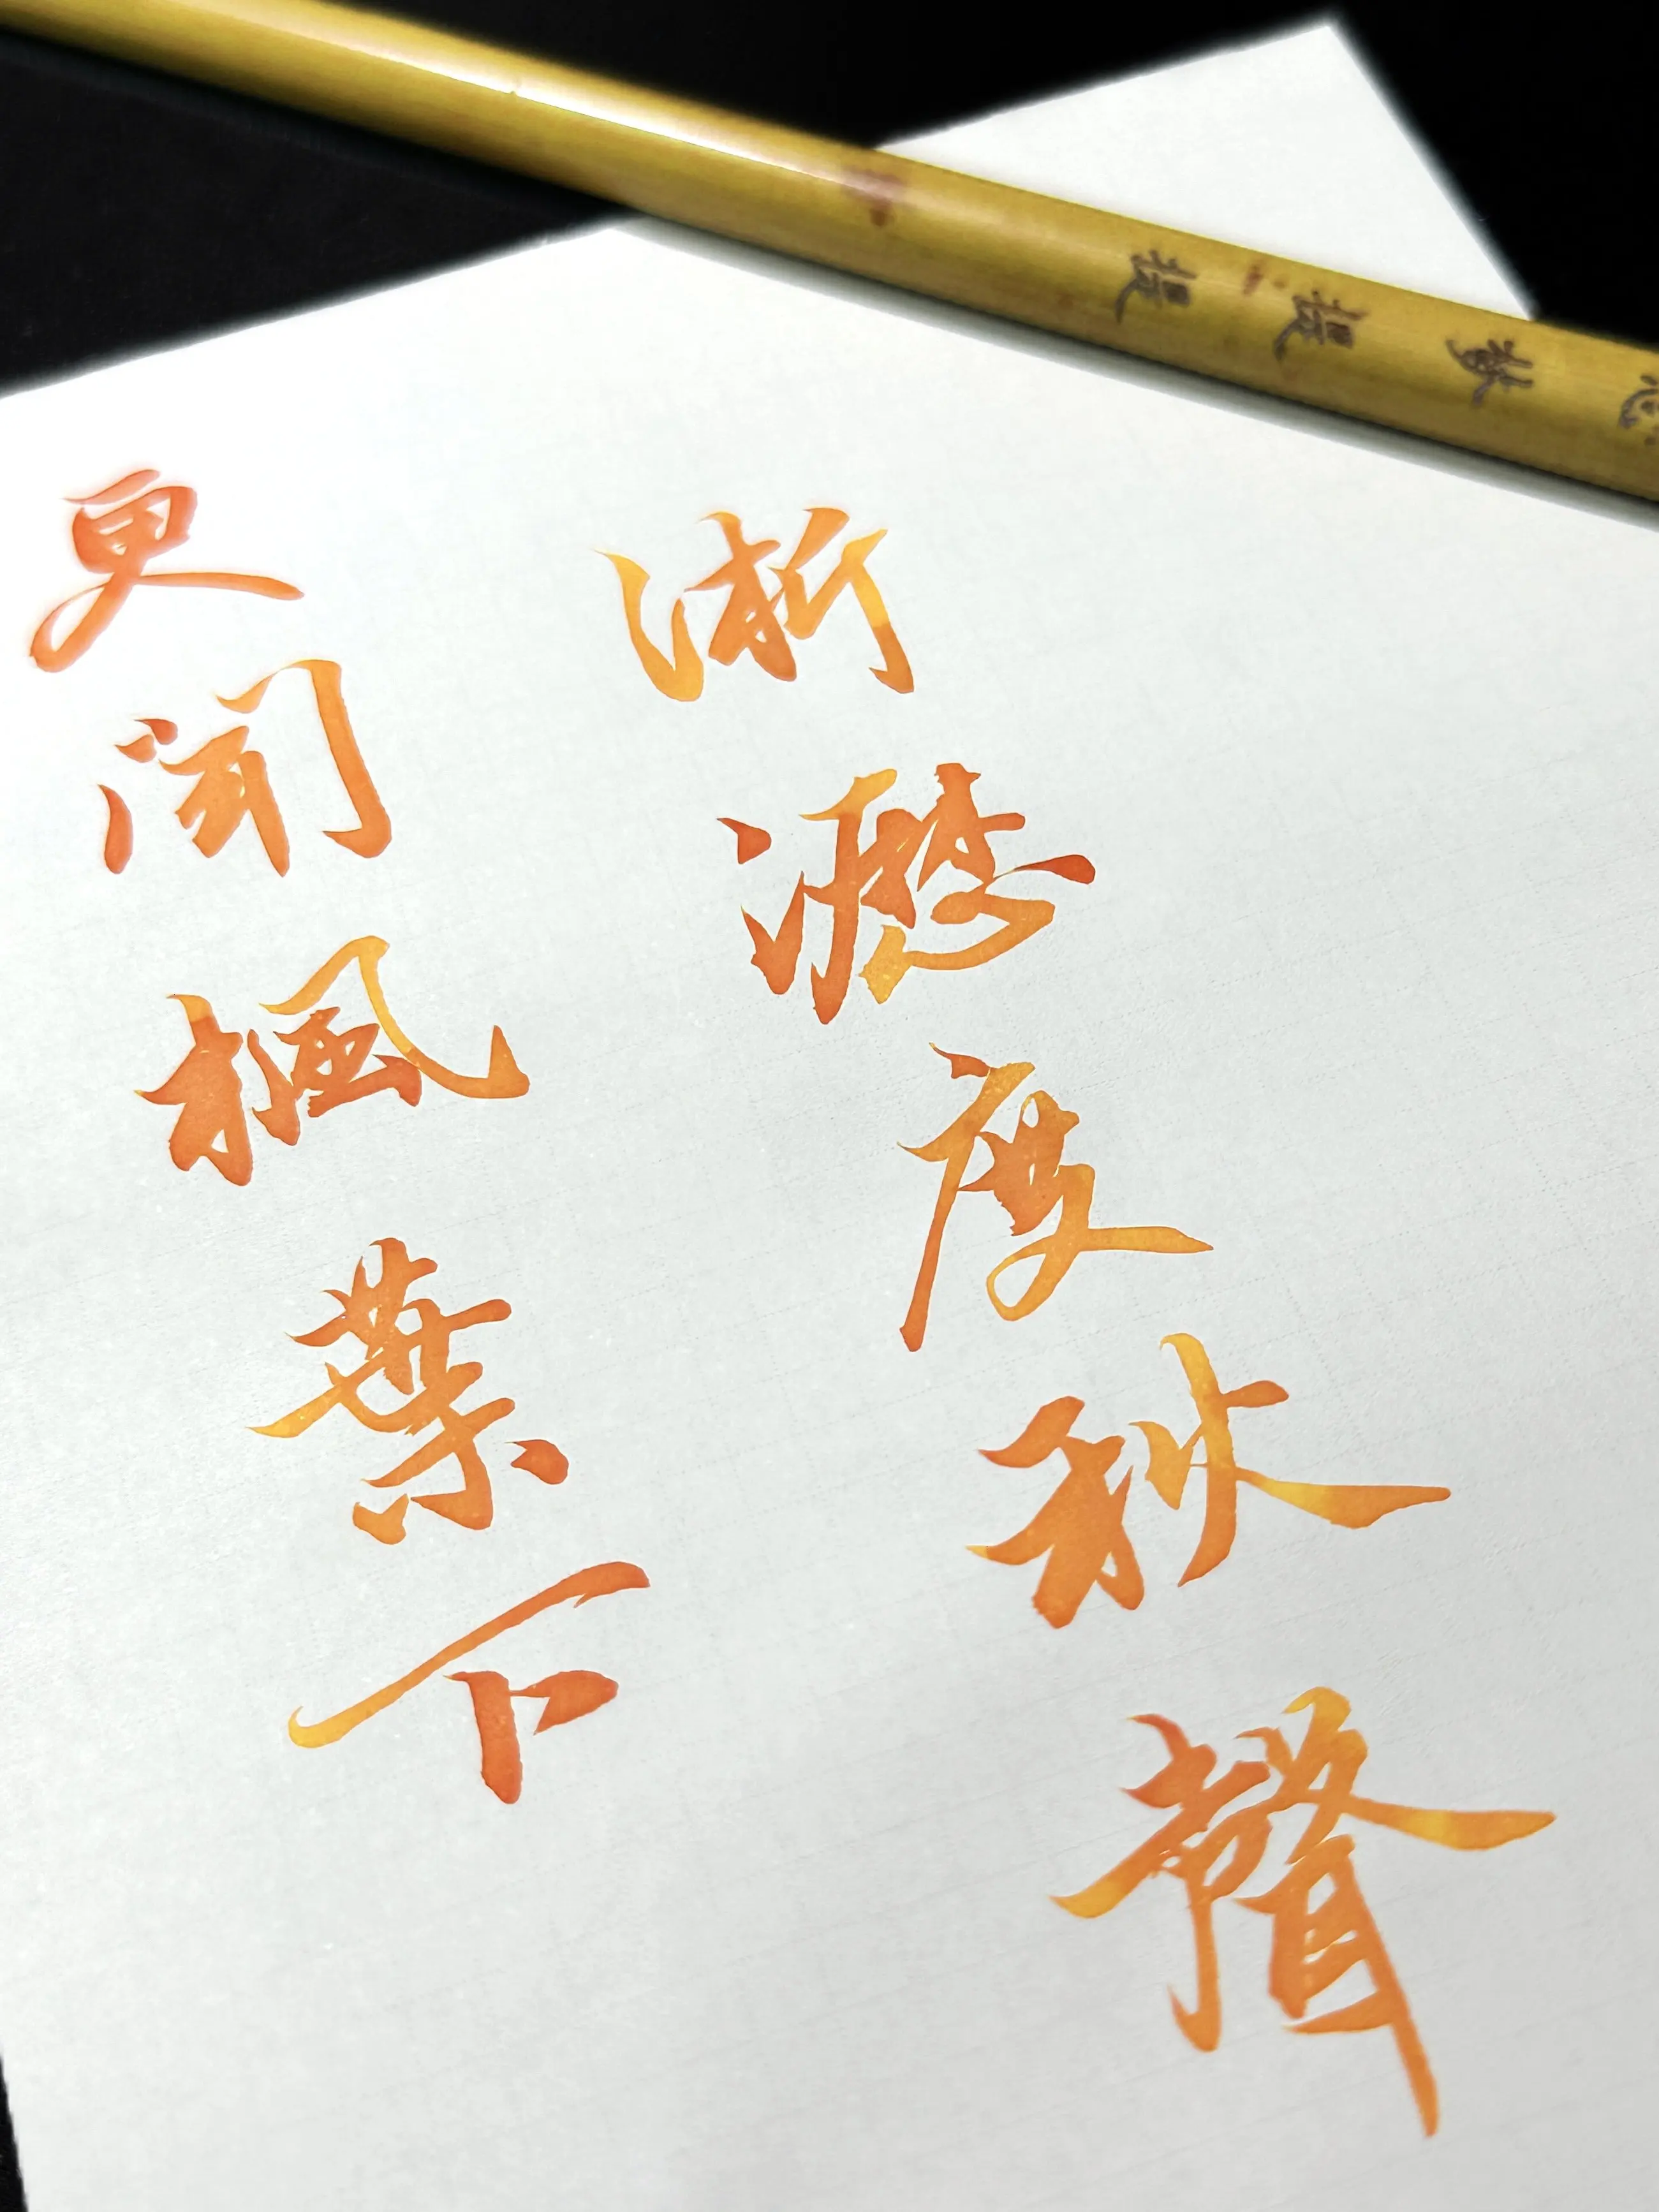 更聞楓葉下
淅瀝度秋聲